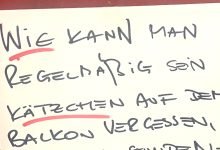 WIE KANN MAN
REGELMÄßIG SEIN
KÄTZCHEN AUF DEM
BALKON VERGESSEN,